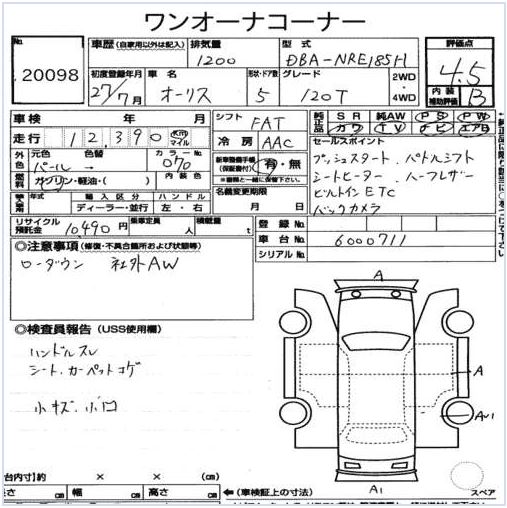 ワンオーナーコーナー
No.
20098
車歴 (自家用以外は記入)
排気量
1200
型式
DBA-NRE185H
評価点
4.5
初度登録年月
27/7月
車名
オーリス
形状・ドア数
5
グレード
120T
2WD
・
4WD
内装
補助評価
B
車検 年 月
シフト
FAT
純正品
SR 純AW PS PW
カワ TV ナビ エアB
走行 12,390 km マイル
冷房
AAC
セールスポイント
プッシュスタート. パドルシフト
シートヒーター. ハーフレザー
ビルトインETC
バックカメラ
外色
元色 色替
パール→
カラーNo.
070
新車整備手帳
(保証書付)
有・無
燃料
ガソリン・軽油・( )
内装色
名義変更期限
月 日
年式
輸入区分
ディーラー・並行
ハンドル
左・右
リサイクル
預託金
10,490円
乗車定員
人
積載量
t
登録No.
車台No.
6000711
シリアルNo.
◎注意事項 (修復・不具合箇所および状態等)
ローダウン 社外AW
◎検査員報告 (USS使用欄)
ハンドルスレ
シート.カーペットコゲ
小キズ.小凹
A
A
A1
台内寸)約 × × (cm)
長さ cm 幅 cm 高さ cm
←(車検証上の寸法)
スペア